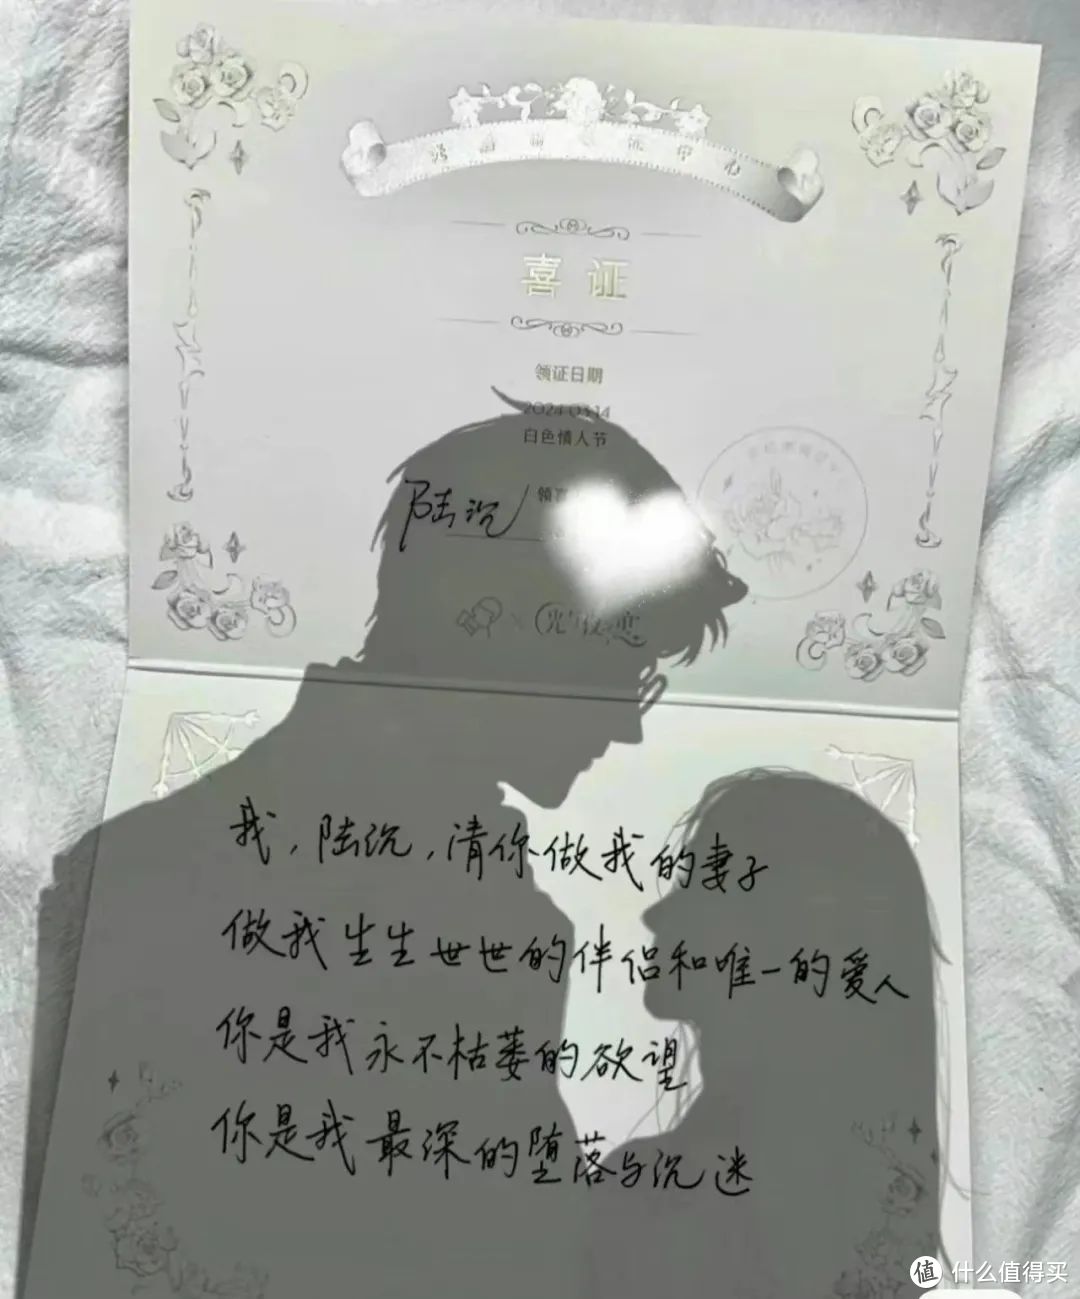 喜证
领证日期
2024.03.14
白色情人节
陆沉
光与夜之恋
我，陆沉，请你做我的妻子
做我生生世世的伴侣和唯一的爱人
你是我永不枯萎的欲望
你是我最深的堕落与沉迷
值 什么值得买